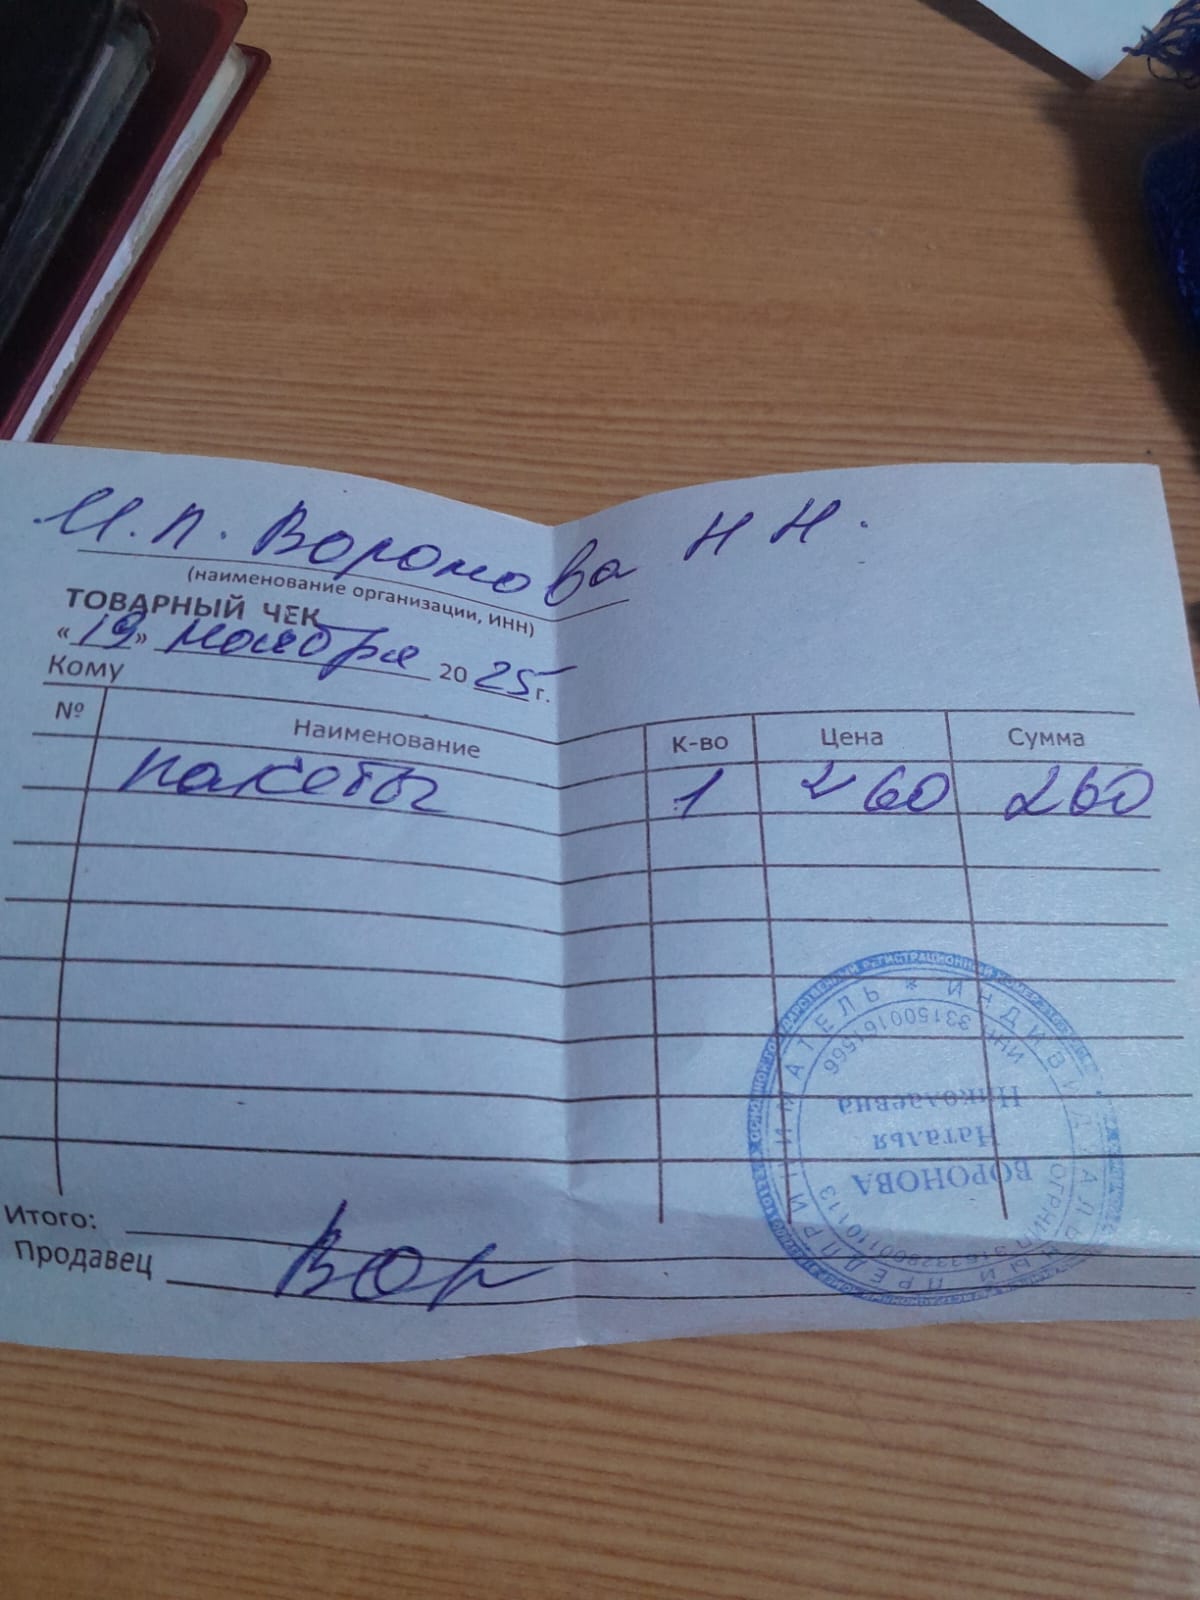 И.П. Воронова Н Н.
(наименование организации, ИНН)
ТОВАРНЫЙ ЧЕК
«19» ноября 2025 г.
Кому
№ Наименование К-во Цена Сумма
пакеты 1 260 260
Итого:
Продавец Вор
ИНДИВИДУАЛЬНЫЙ ПРЕДПРИНИМАТЕЛЬ *
ИНН 331500161566
ВОРОНОВА
Наталья
Николаевна